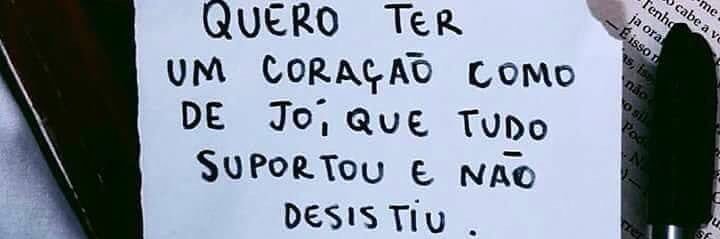 QUERO TER
UM CORAÇÃO COMO
DE JÓ, QUE TUDO
SUPORTOU E NÃO
DESISTIU.
cabe a
Tenho
ja ora
É isso
não